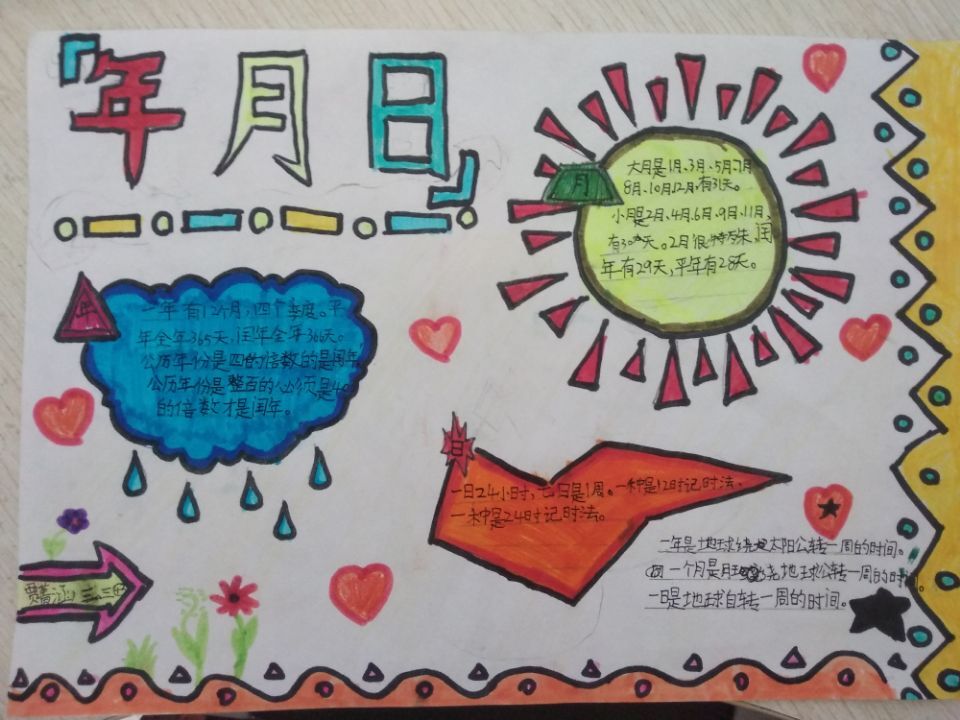 『年月日』
月
大月是1月、3月、5月、7月
8月、10月12月,有31天。
小月是2月、4月、6月、9月、11月,
有30天。2月很特殊,闰
年有29天,平年有28天。
年
一年有12个月,四个季度。平
年全年365天,闰年全年366天。
公历年份是四的倍数的是闰年
公历年份是整百的必须是40
的倍数才是闰年。
日
一日24小时,七日是1周。一种是12时记时法、
一种是24时记时法。
一年是地球绕太阳公转一周的时间。
一个月是月球绕地球公转一周的时间。
一日是地球自转一周的时间。
三